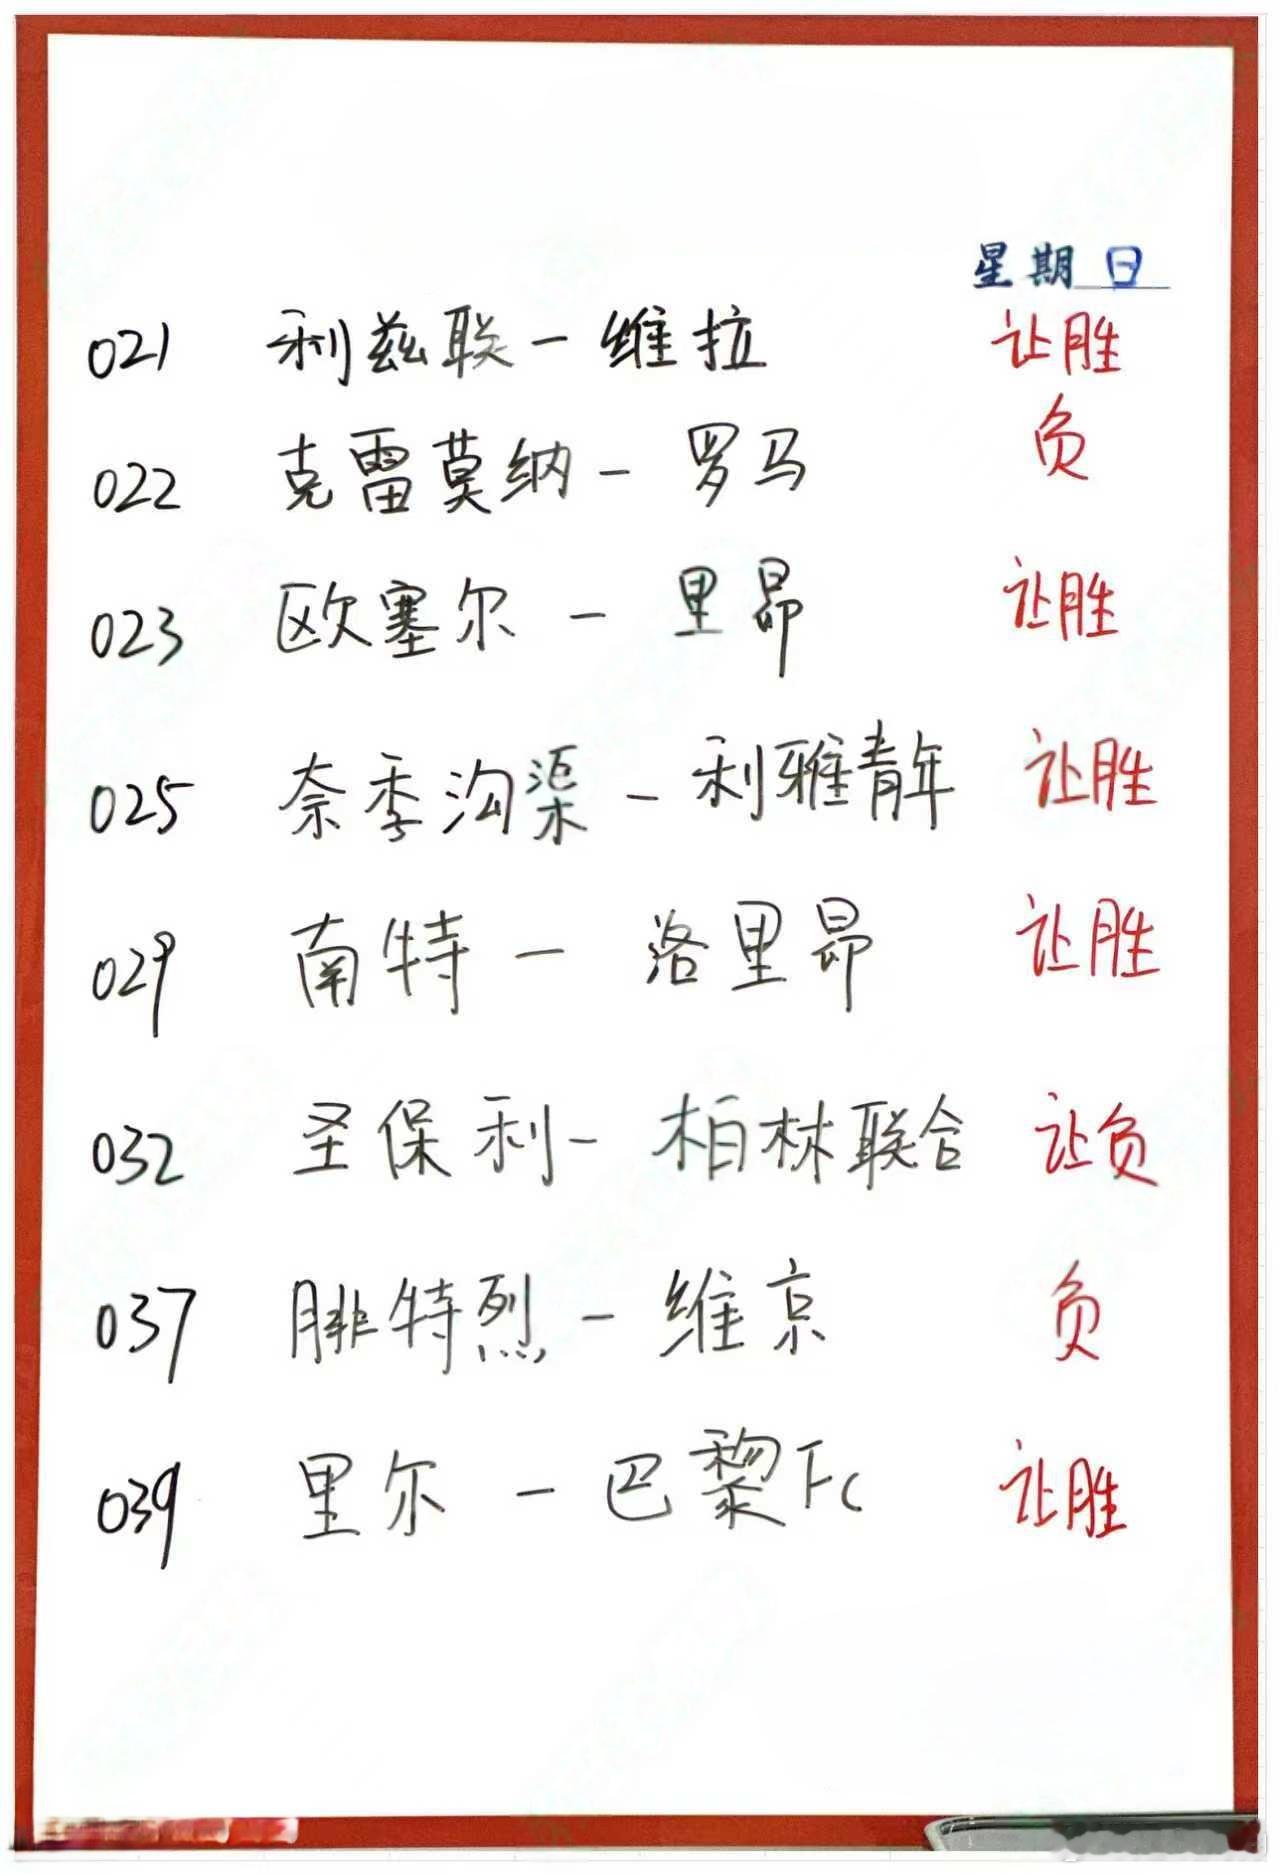 星期日
021 利兹联-维拉 让胜
022 克雷莫纳-罗马 负
023 欧塞尔-里昂 让胜
025 奈季沟渠-利雅青年 让胜
029 南特-洛里昂 让胜
032 圣保利-柏林联合 让负
037 腓特烈-维京 负
039 里尔-巴黎Fc 让胜